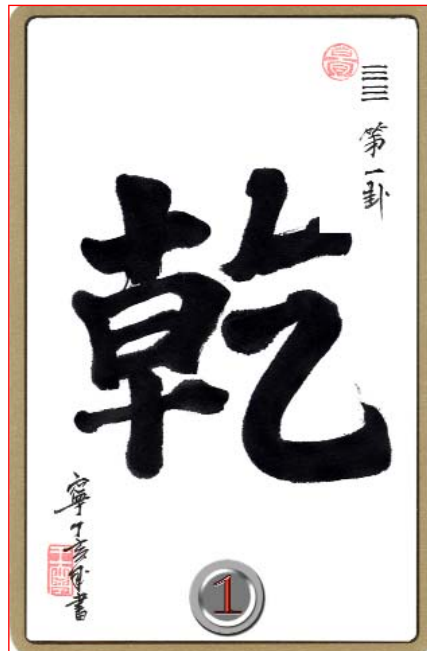 第一卦
乾
寧丁亥書
1